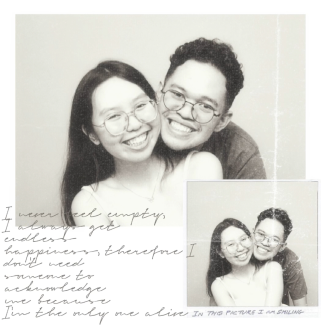 I never feel empty,
I always get
endless
happiness, therefore I
don't need
someone to
acknowledge
me because
I'm the only one alive
IN THIS PICTURE I AM SMILING